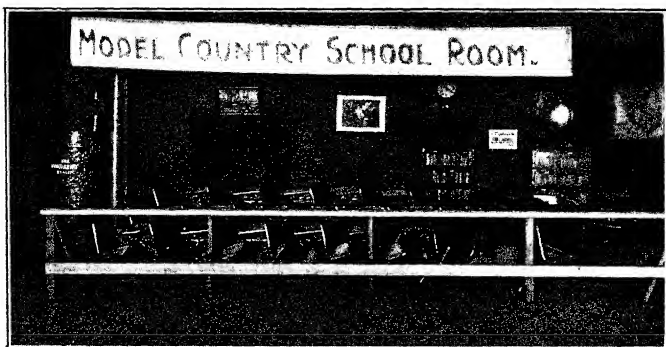 MODEL COUNTRY SCHOOL ROOM.